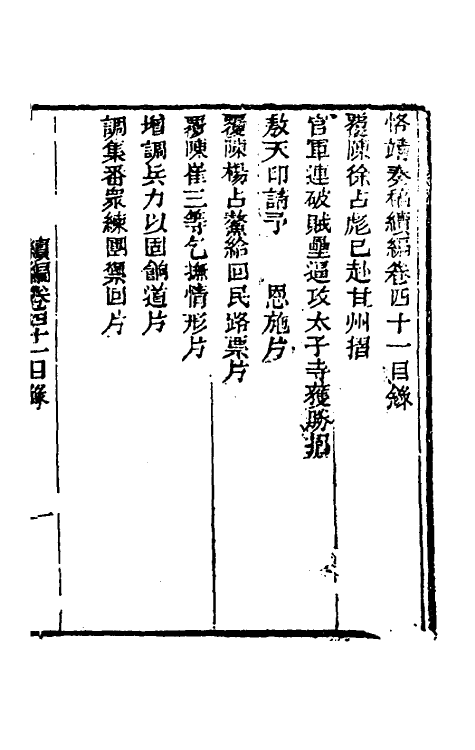 恪靖奏稿續編卷四十一目錄
覆陳徐占彪已赴甘州摺
官軍連破賊壘逼攻太子寺獲勝摺
敖天印請予 恩施片
覆陳楊占鰲給回民路票片
覆陳崔三等乞撫情形片
增調兵力以固餉道片
調集番衆練團禦回片
續編卷四十一目錄 一